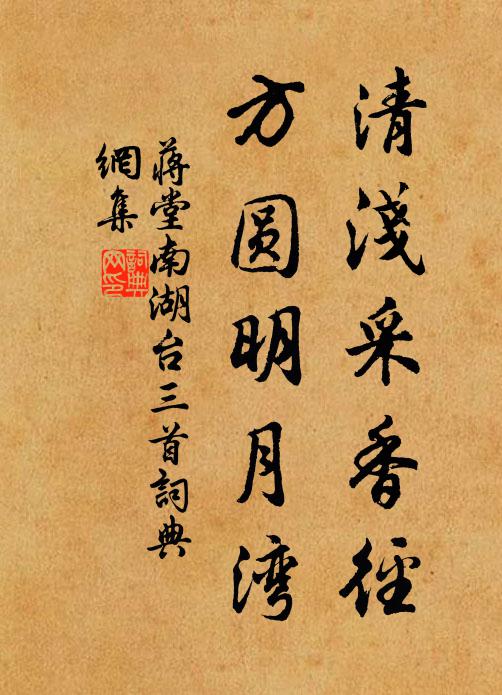 清淺采香徑
方圆明月湾
蔣堂南湖台三首詞典
網集
詞典
网印